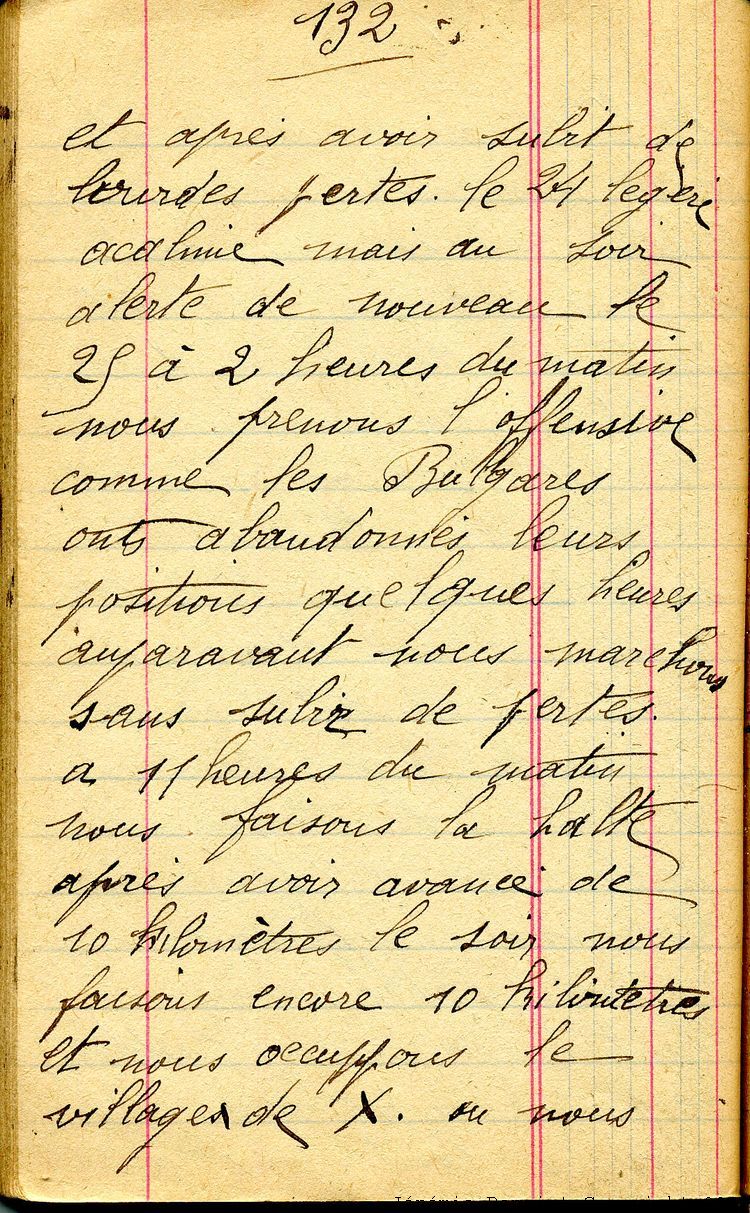 132
et après avoir subit de
lourdes pertes. le 24 legère
acalmie mais au soir
alerte de nouveau le
25 à 2 heures du matin
nous prenons l'offensive
comme les Bulgares
onts abandonnés leurs
positions quelques heures
auparavant nous marchons
sans subir de pertes.
a 11 heures du matin
nous faisons la halte
après avoir avancé de
10 kilomètres le soir nous
faisons encore 10 kilomètres
et nous occuppons le
villages de X. ou nous